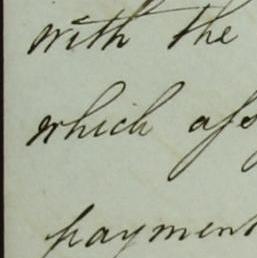 with the
which
payment